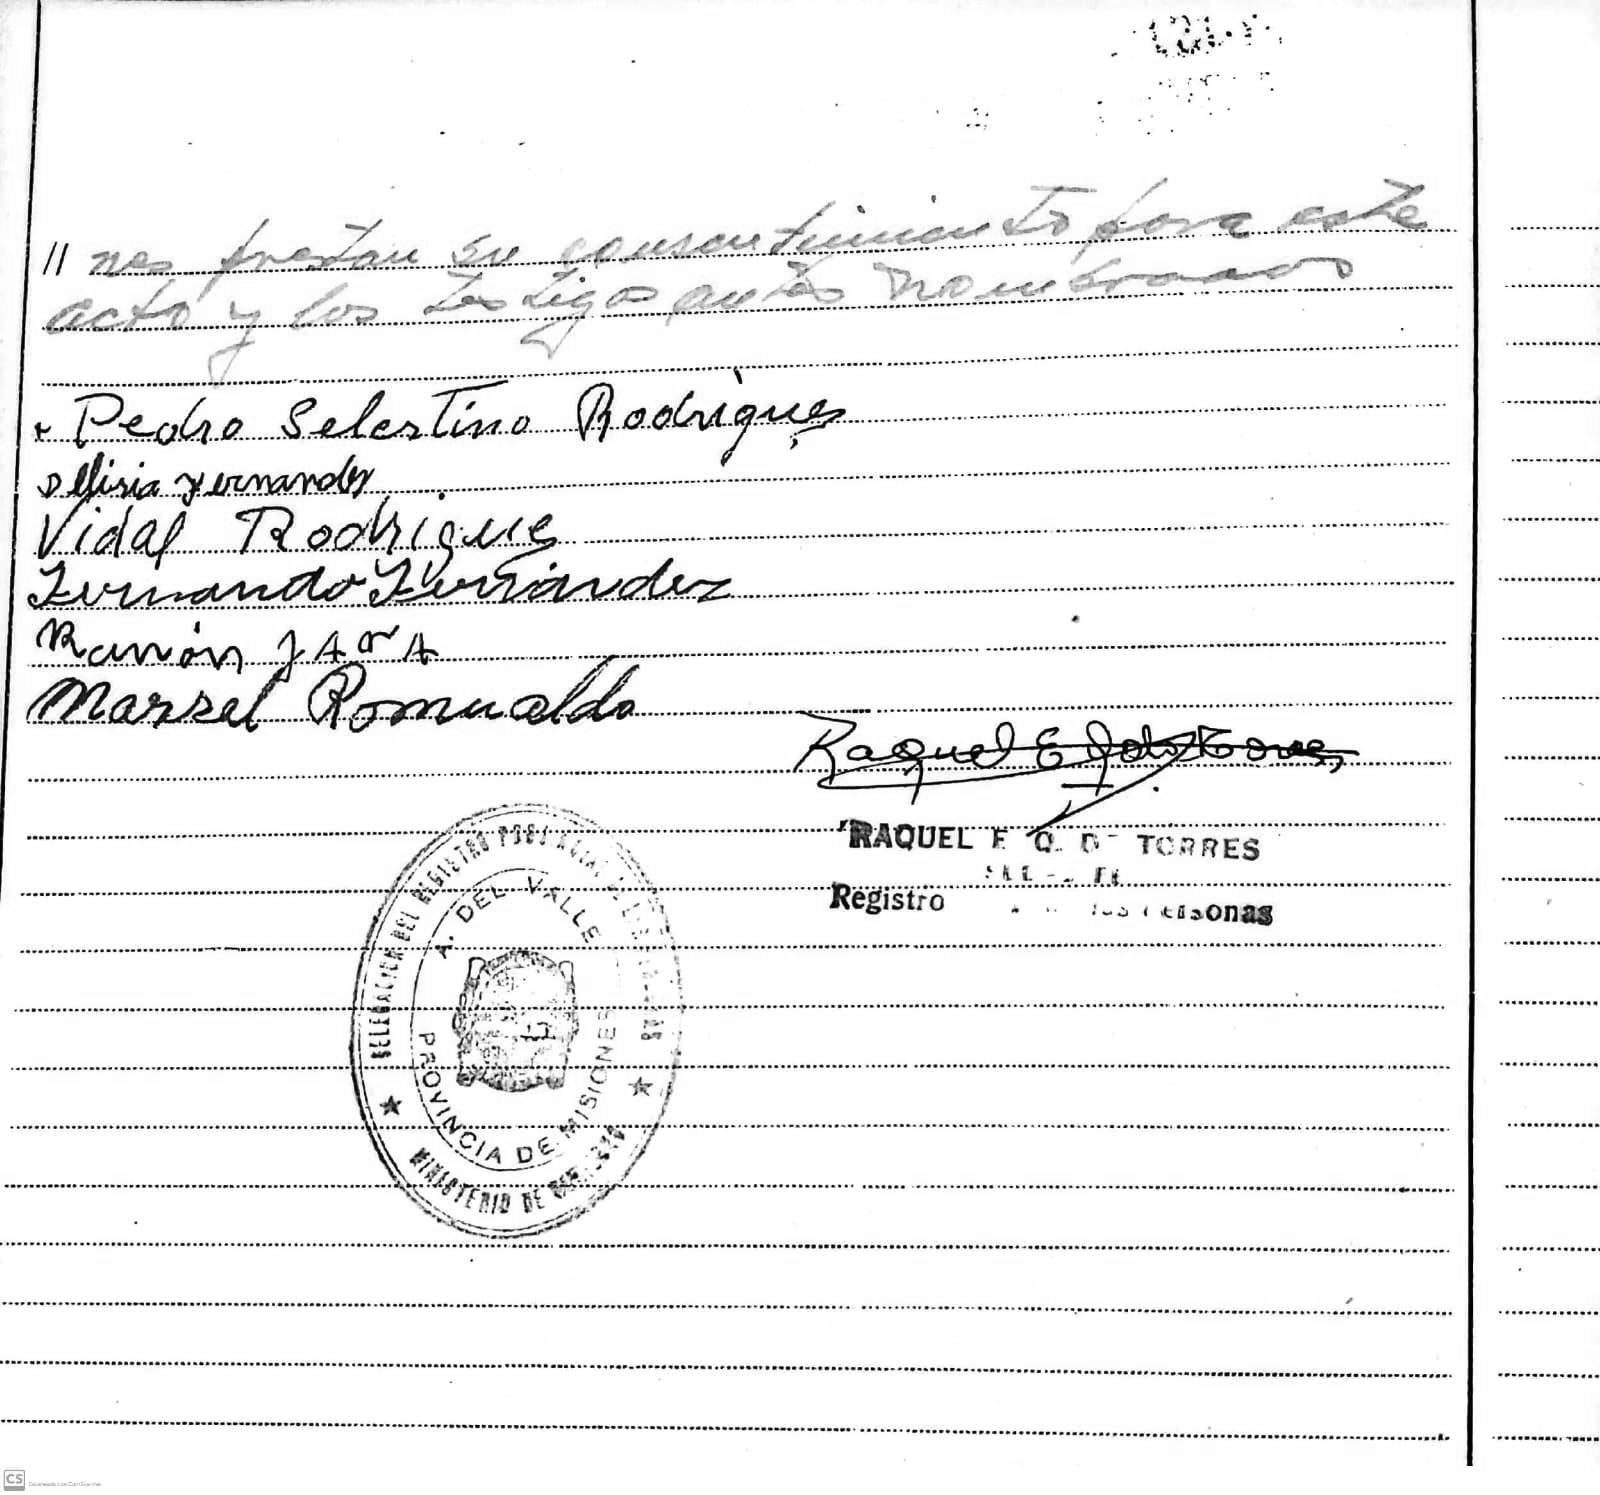 // nes prestan su consentimiento para este
acto y los testigos antes nombrados
Pedro Selestino Rodrigues
Vidal Rodrigues
Fernando Fernández
Ramón JARA
Marsel Romualdo
Raquel E Q de Torres
RAQUEL E Q. DE TORRES
Registro Personas
DELEGACION DEL REGISTRO PROVINCIAL DE LAS PERSONAS
A. DEL VALLE
PROVINCIA DE MISIONES
MINISTERIO DE GOBIERNO
CS Escaneado con CamScanner